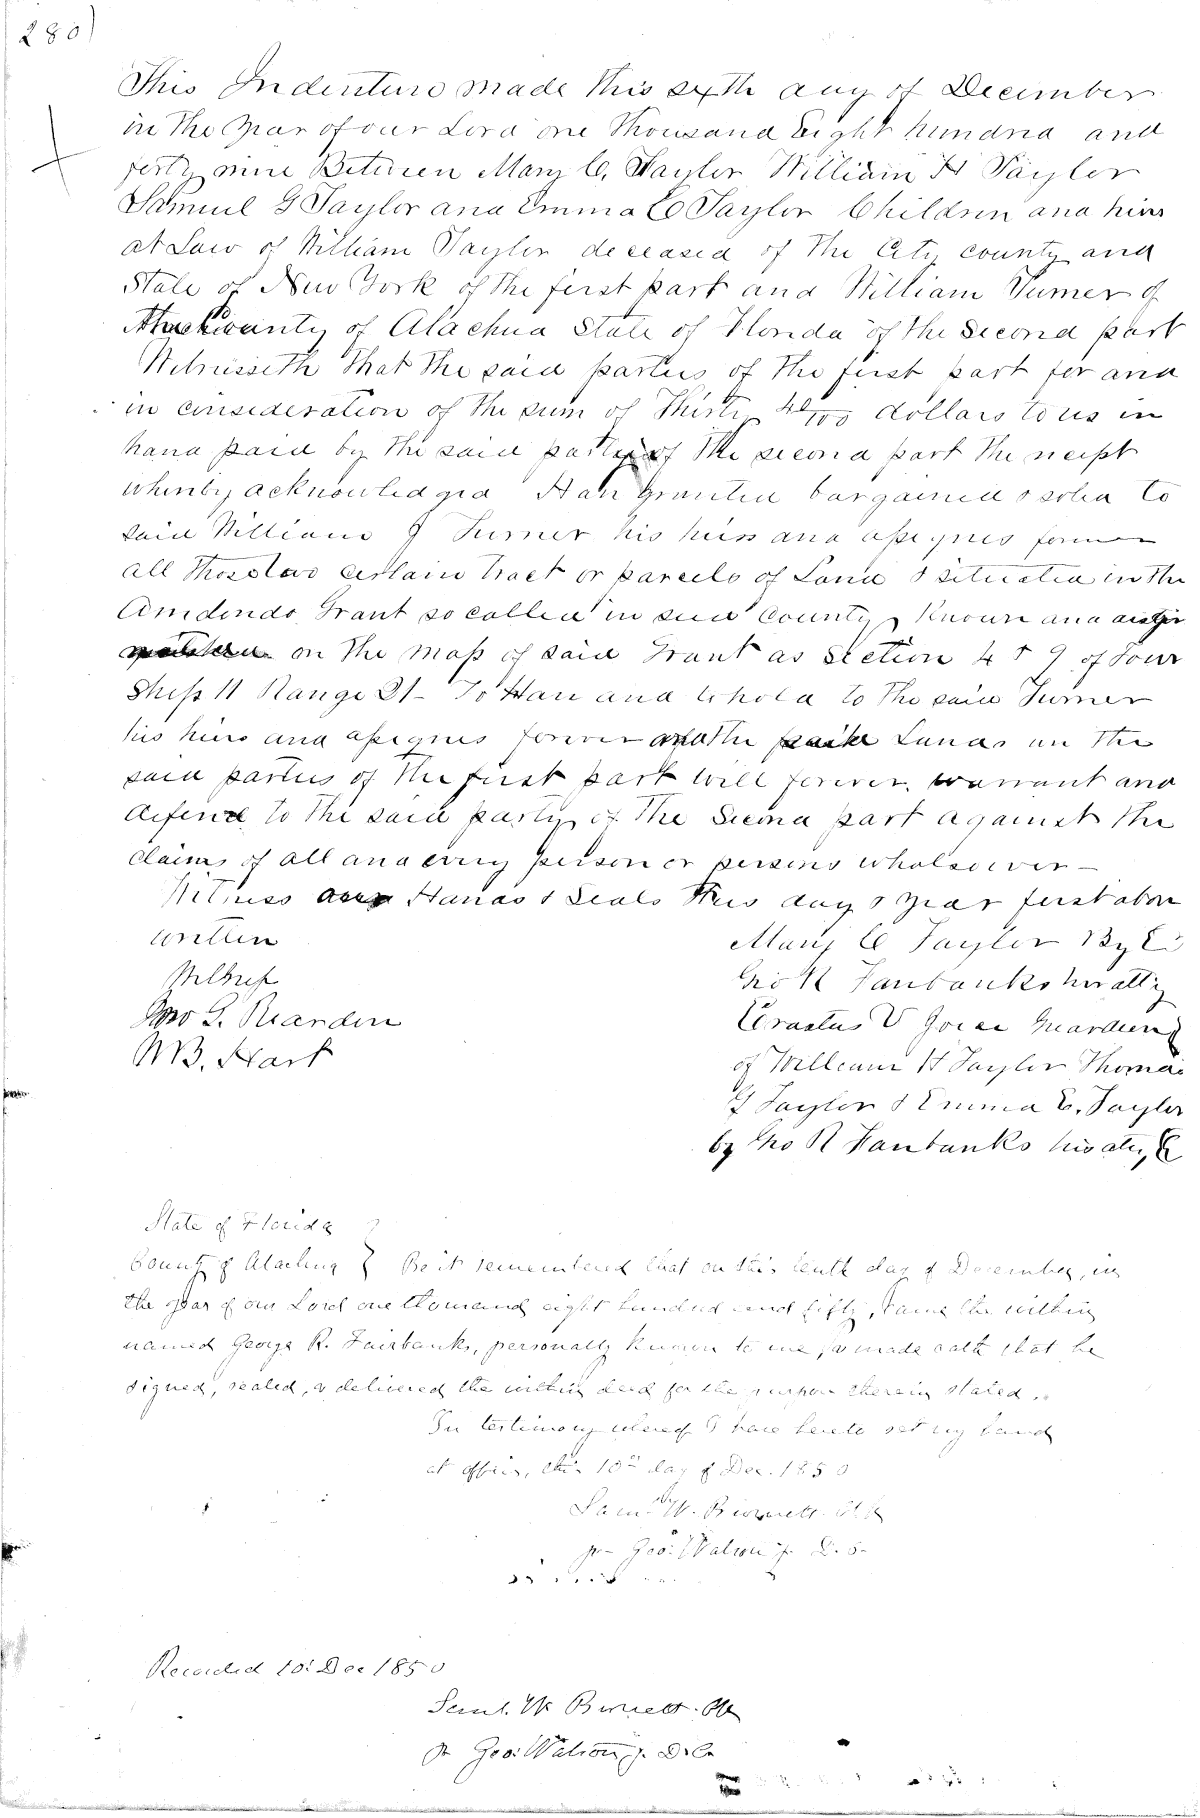 280)
This Indenture made this sixth day of December
in the year of our Lord one thousand Eight hundred and
forty nine Between Mary C. Taylor William H Taylor
Samuel G Taylor and Emma C Taylor Children and heirs
at Law of William Taylor deceased of the City county and
State of New York of the first part and William Turner of
the County of Alachua State of Florida of the Second part
Witnesseth that the said parties of the first part for and
in consideration of the sum of Thirty 40/100 dollars to us in
hand paid by the said party of the second part the receipt
whereby acknowledged Have granted bargained & sold to
said William J Turner his heirs and assignes forever
all those two certain tract or parcels of Land & situated in the
Arredondo Grant so called in said County, Known and desig
on the map of said Grant as Section 4 & 9 of Town
ship 11 Range 21 - To Have and to hold to the said Turner
his heirs and assignes forever and the said Lands we the
said parties of the first part will forever warrant and
defend to the said party of the Second part against the
claims of all and every person or persons whatsoever -
Witness our Hands & Seals this day & year first above
written
Mary C Taylor By
Geo R Fairbanks her atty
Witness
Jno G. Reardon
Erastus V Guardian
W B. Hart
of William H Taylor Thomas
G Taylor & Emma C. Taylor
by Geo R Fairbanks his atty
State of Florida
County of Alachua } Be it remembered that on this tenth day of December, in
the year of our Lord one thousand eight hundred and fifty, came the within
named George R. Fairbanks, personally known to me, & made oath that he
signed, sealed, & delivered the within deed for the purpose therein stated.
In testimony whereof I have hereto set my hand
at office, this 10th day of Dec. 1850
Saml W. Burnett Clk
pr Geo. Watson jr. D. C.
Recorded 10: Dec 1850
Saml. W Burnett. Clk
pr Geo: Watson jr. D. C.